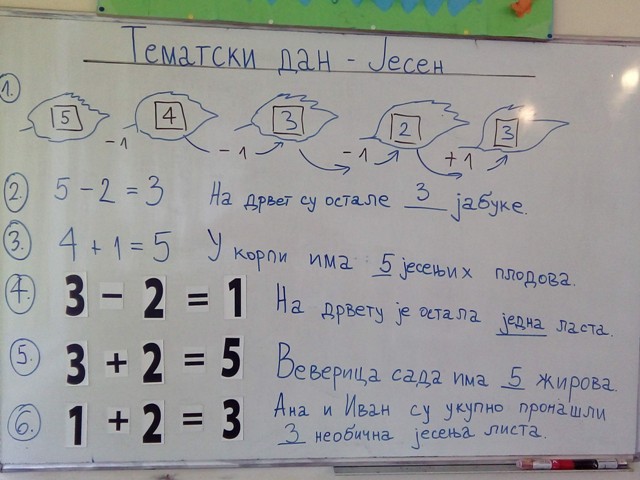 Тематски дан - Јесен
1. 5 4 3 2 3
-1 -1 -1 +1
2. 5 - 2 = 3 На дрвет су остале 3 јабуке.
3. 4 + 1 = 5 У корпи има 5 јесењих плодова.
4. 3 - 2 = 1 На дрвету је остала једна ласта.
5. 3 + 2 = 5 Веверица сада има 5 жирова.
6. 1 + 2 = 3 Ана и Иван су укупно пронашли
3 необична јесења листа.